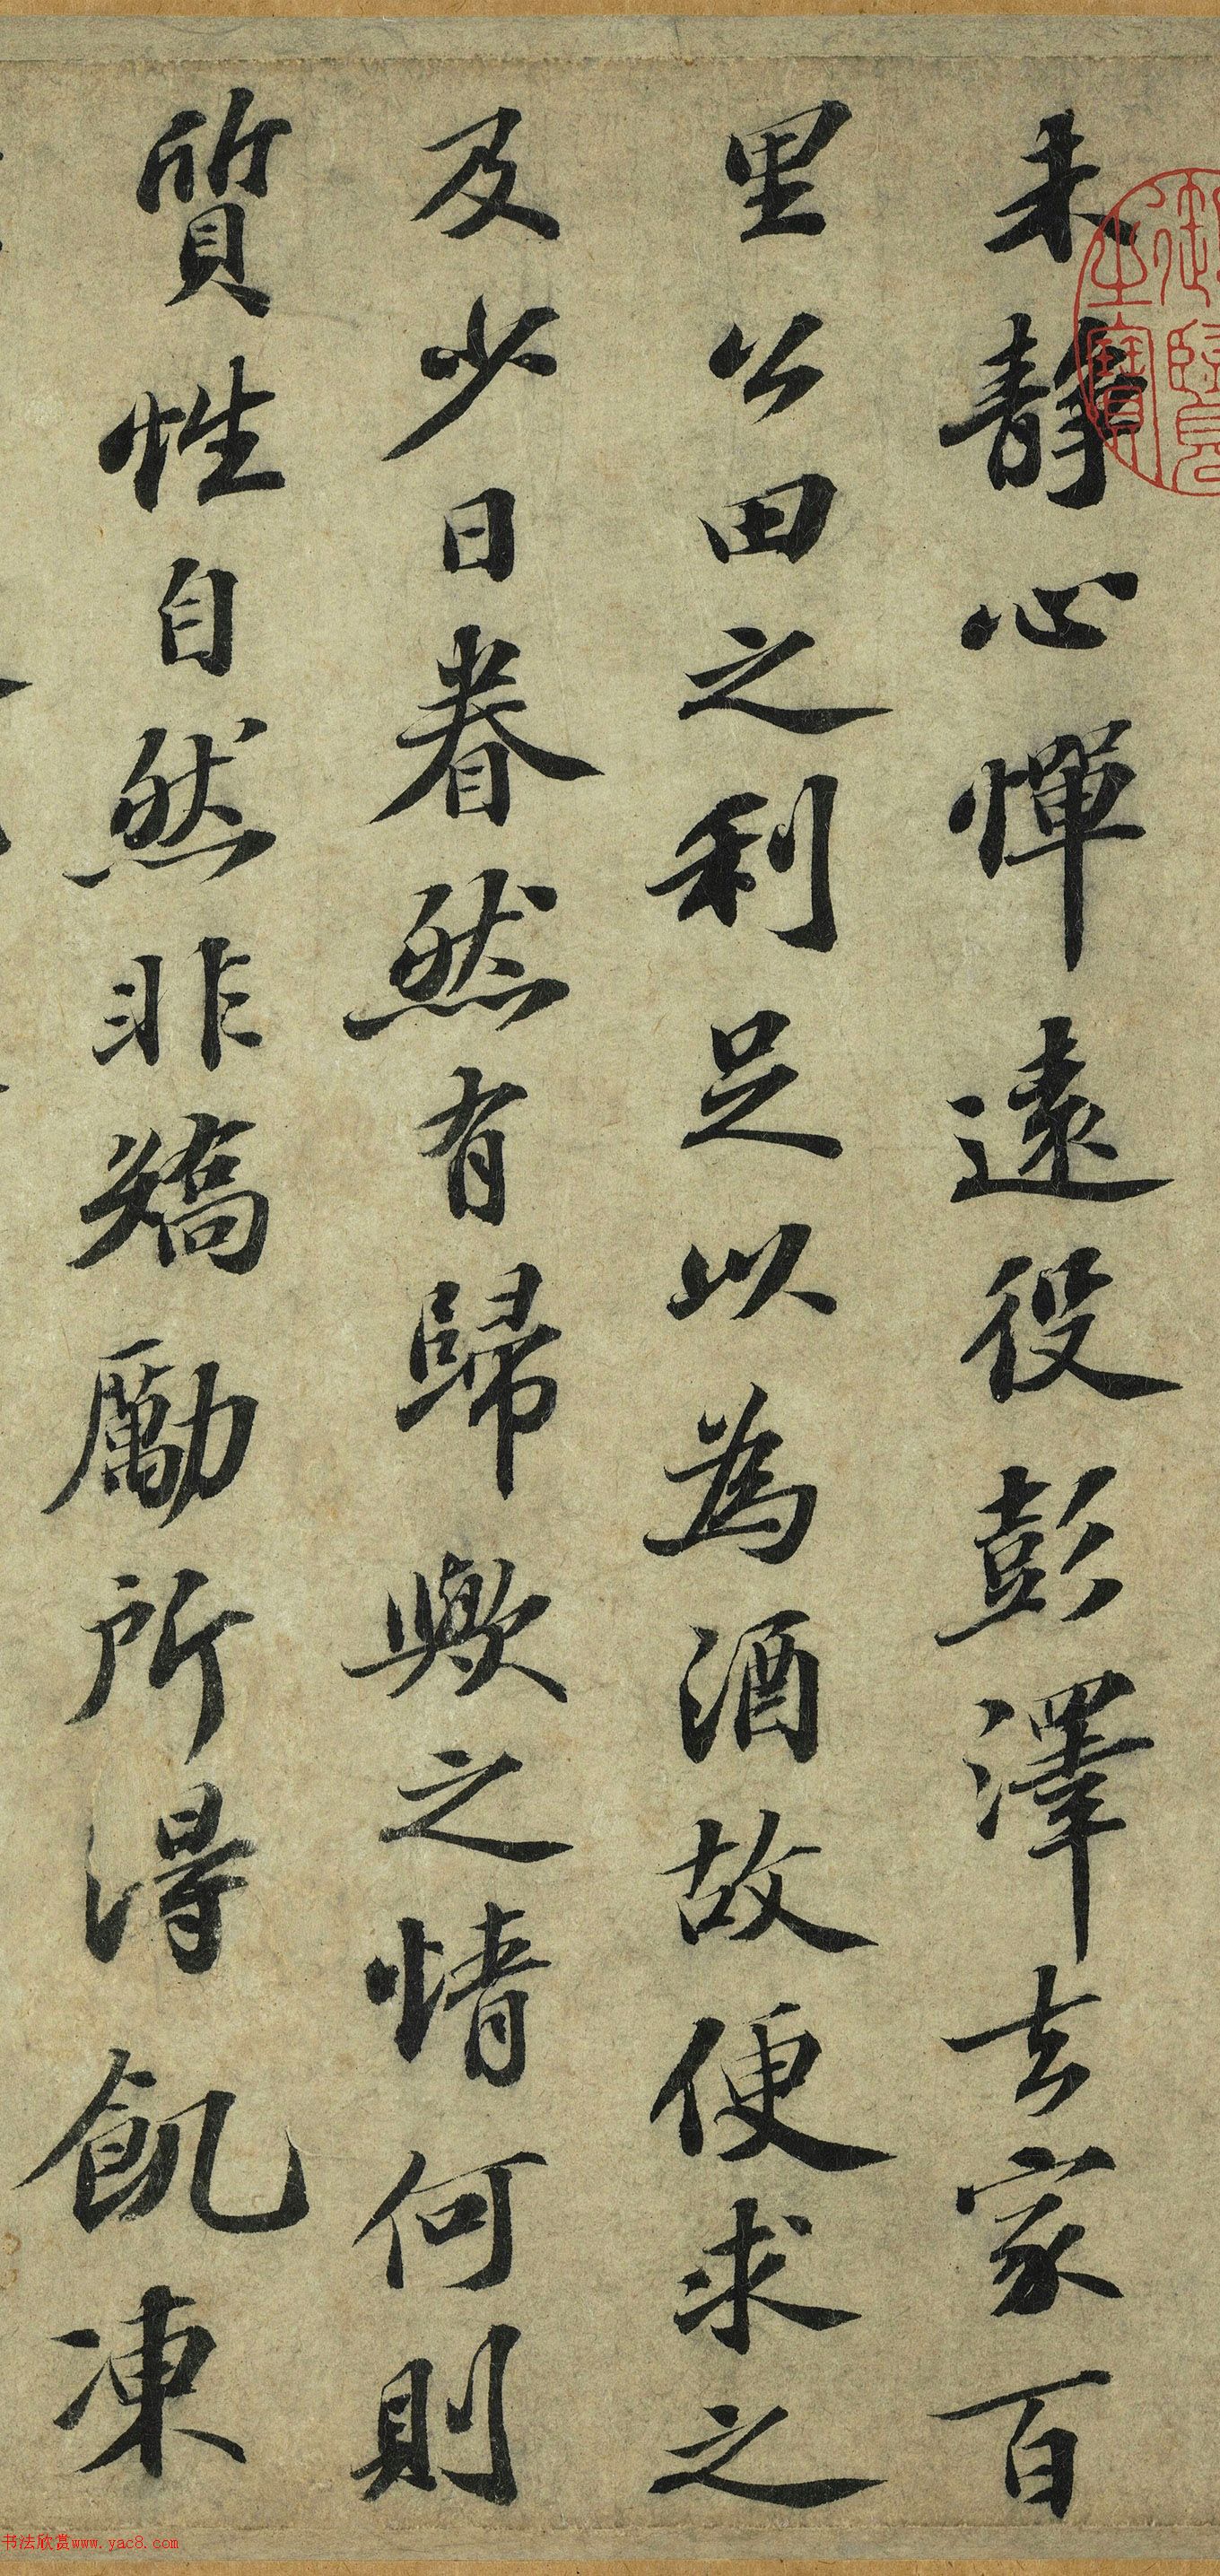 未靜心憚遠役彭澤去家百
里公田之利足以為酒故便求之
及少日眷然有歸歟之情何則
質性自然非矯勵所得飢凍
御覽
之寶
书法欣赏www.yac8.com